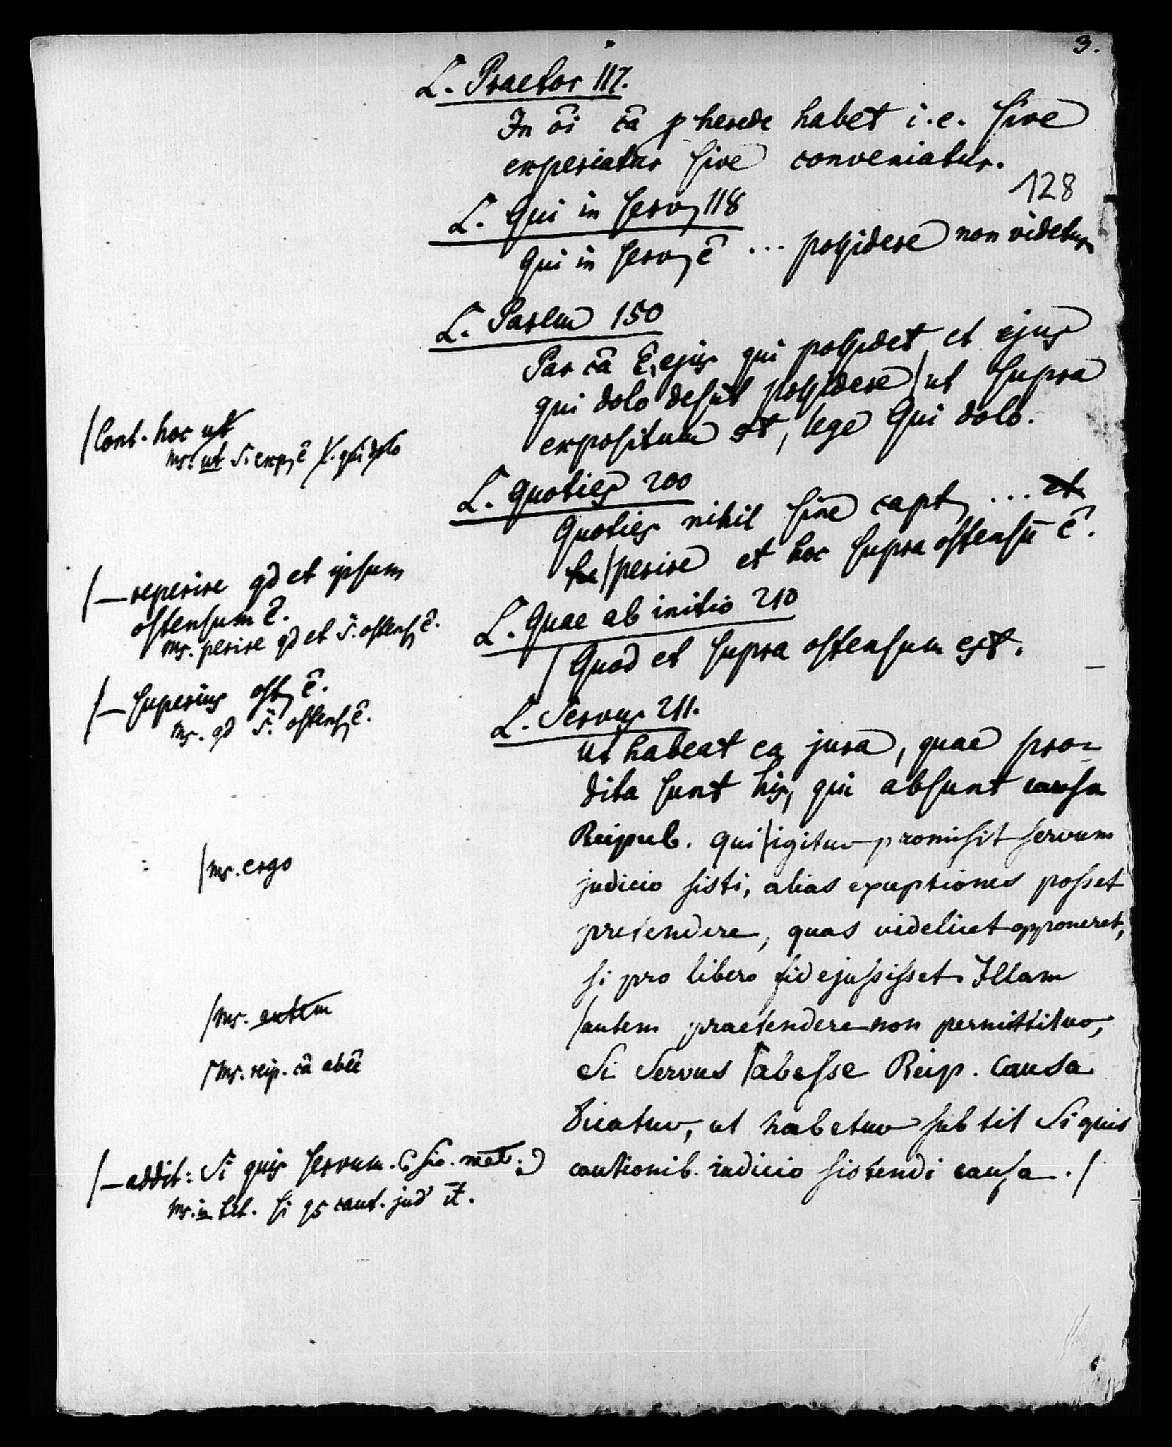 3.
L. Praetor 117.
In oi cā p herede habet i.e. sive
experiatur sive conveniatur.
128
L. Qui in serv 118
Qui in serv ē ... possidere non videtur
L. Parem 150
Par cā ē, ejus qui possidet et ejus
qui dolo desiit possidere /ut supra
expositum est, lege Qui dolo.
/Cont. hoc ut
ms. ut s. exp ē /l. qui dolo
L. Quoties 200
Quoties nihil sine capt ... et
/perire et hoc supra ostensū ē.
/— reperire qd et ipsum
ostensum ē.
ms. perire qd et s. ostens ē.
L. Quae ab initio 210
/Quod et supra ostensum est.
/— superius ost ē.
ms. qd s. ostens ē.
L. Servus 211.
ut habeat ea jura, quae pro=
dita sunt his, qui absunt causa
Reipub. qui /igitur promisit servum
/ms. ergo
judicio sisti, alias exceptiones posset
pretendere, quas videlicet opponeret,
si pro libero fidejussisset. Illam
/autem praetendere non permittitur,
/ms. autem
Si Servus /abesse Reip. Causa
/ms. reip. cā abēē
dicatur, ut habetur sub tit Si quis
cautionib. iudicio sistendi causa ./
/— addit: Si quis servum.
ms. in tit. si qs caut. jud